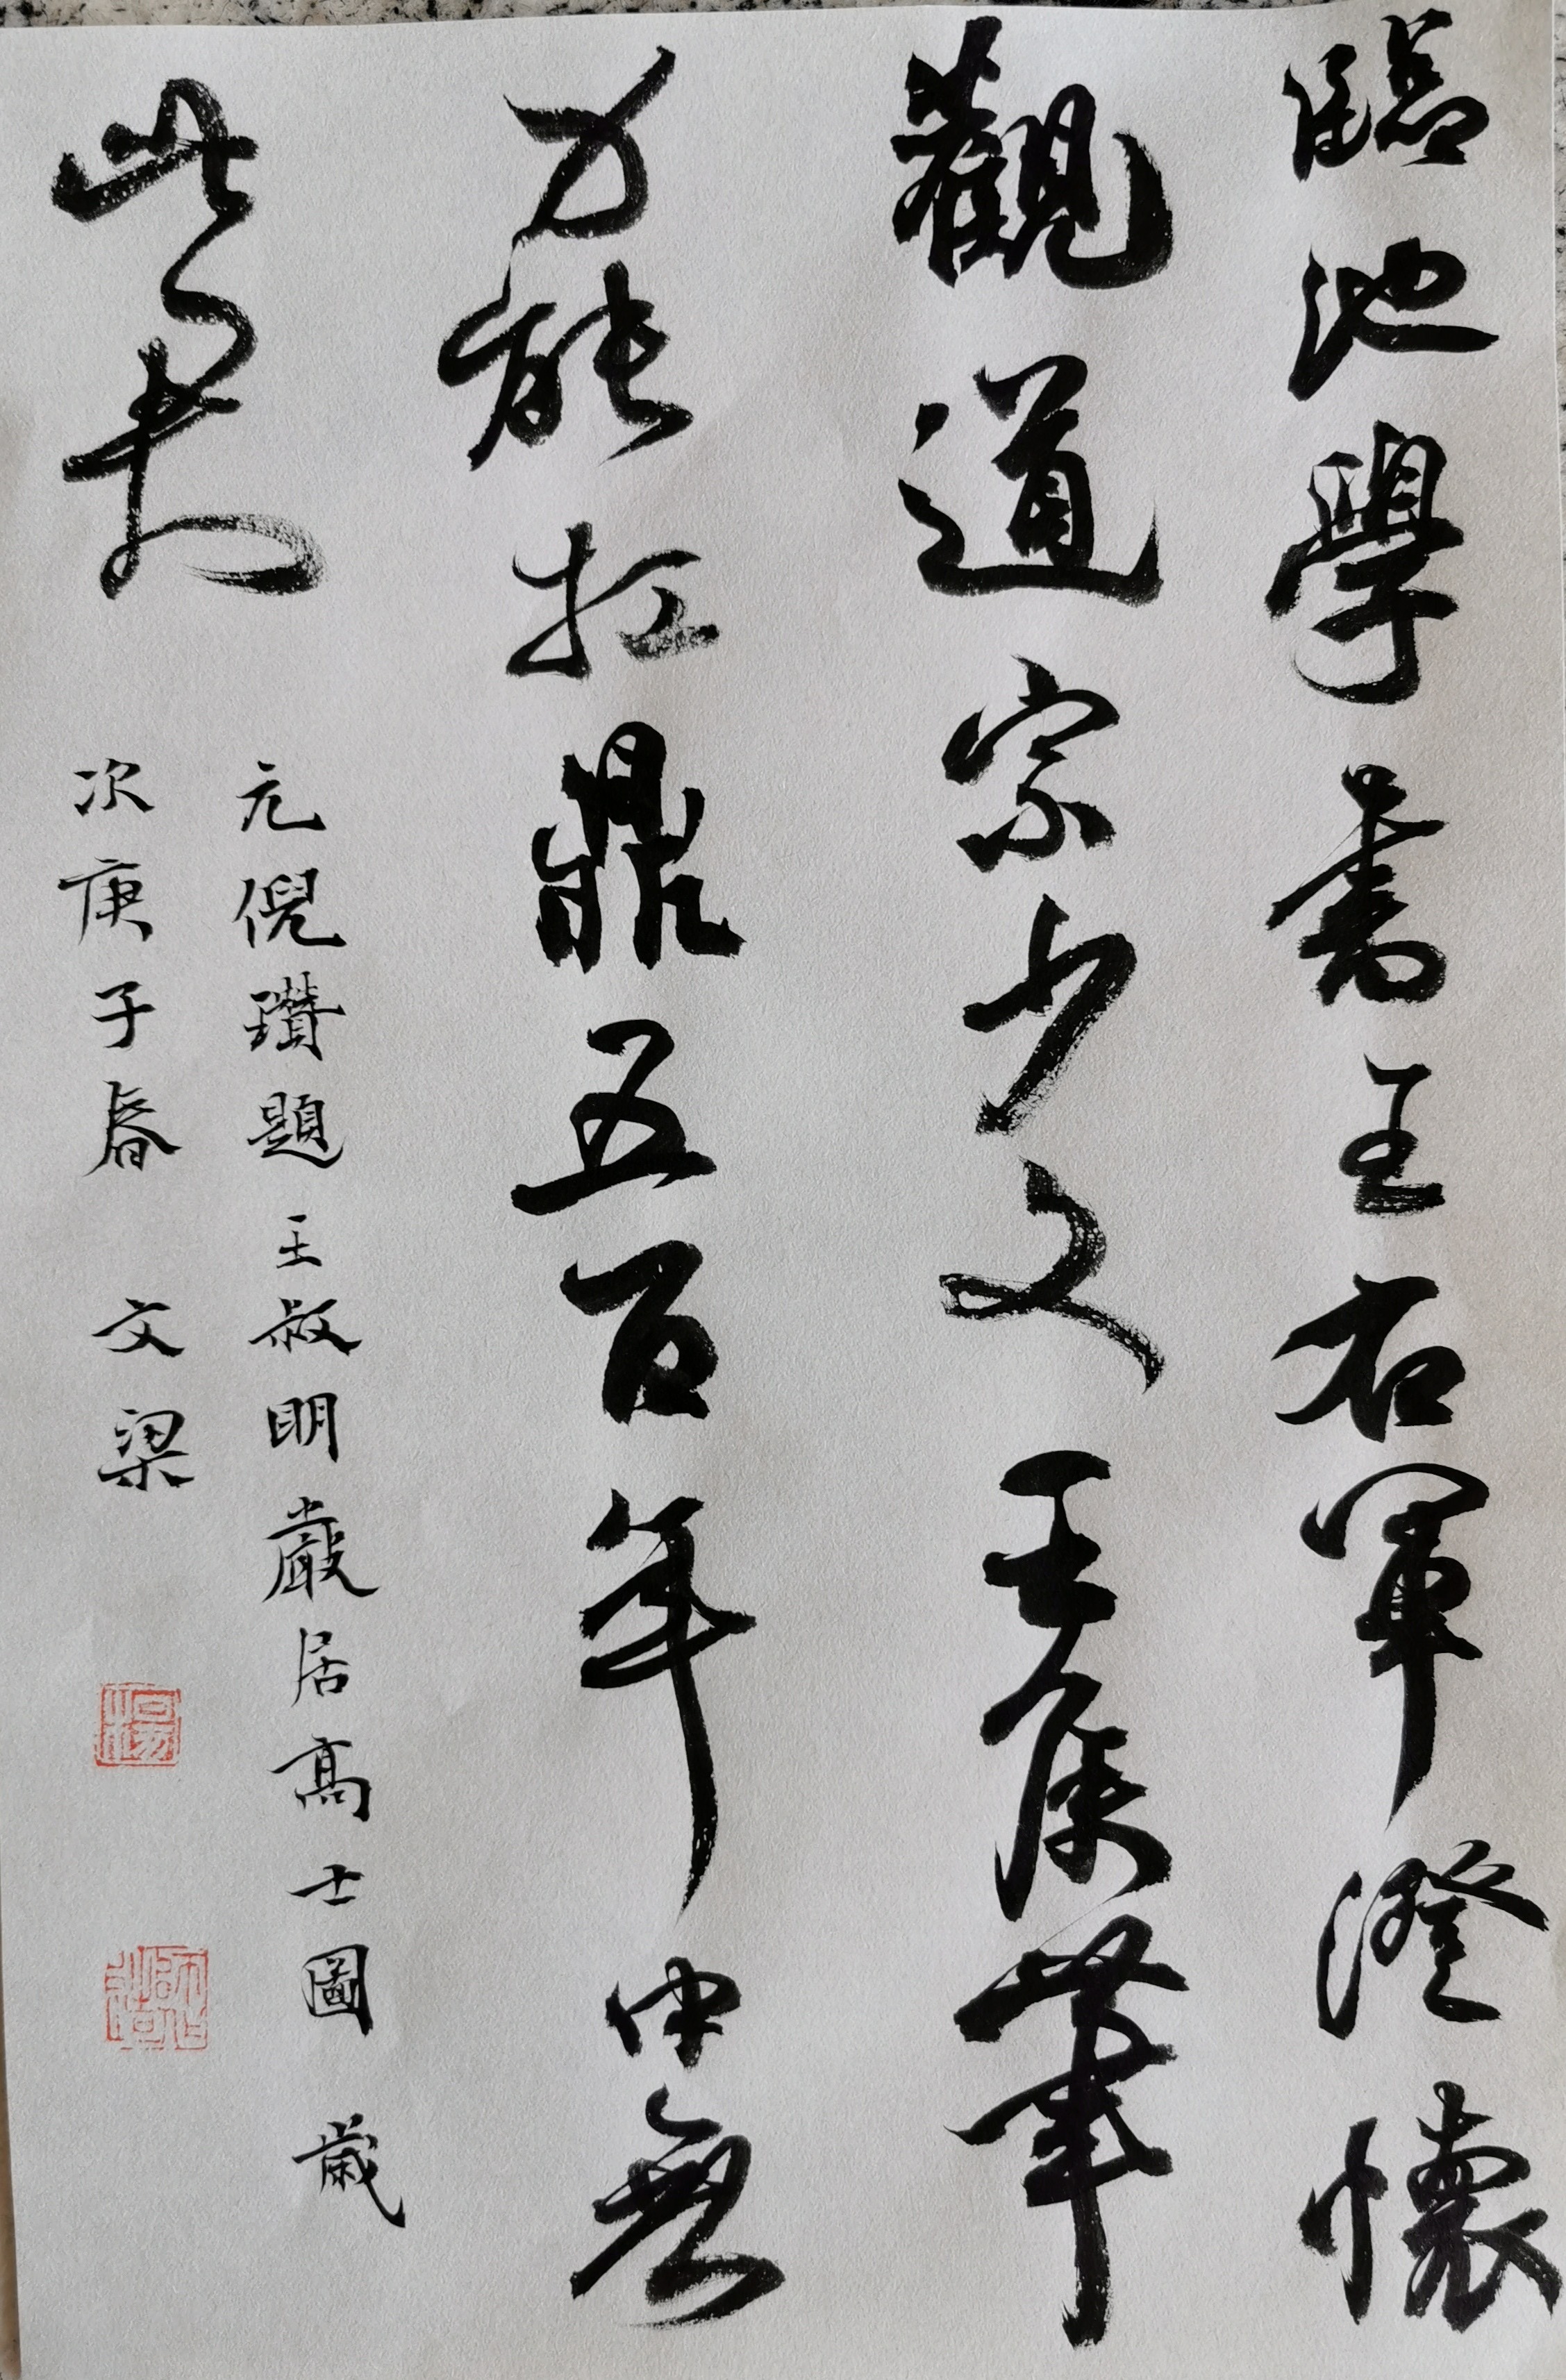 臨池學書王右軍澄懷
觀道宗少文王侯筆
力能扛鼎五百年中無
此君
元倪瓚題王叔明巖居高士圖歲
次庚子春 文梁
楊